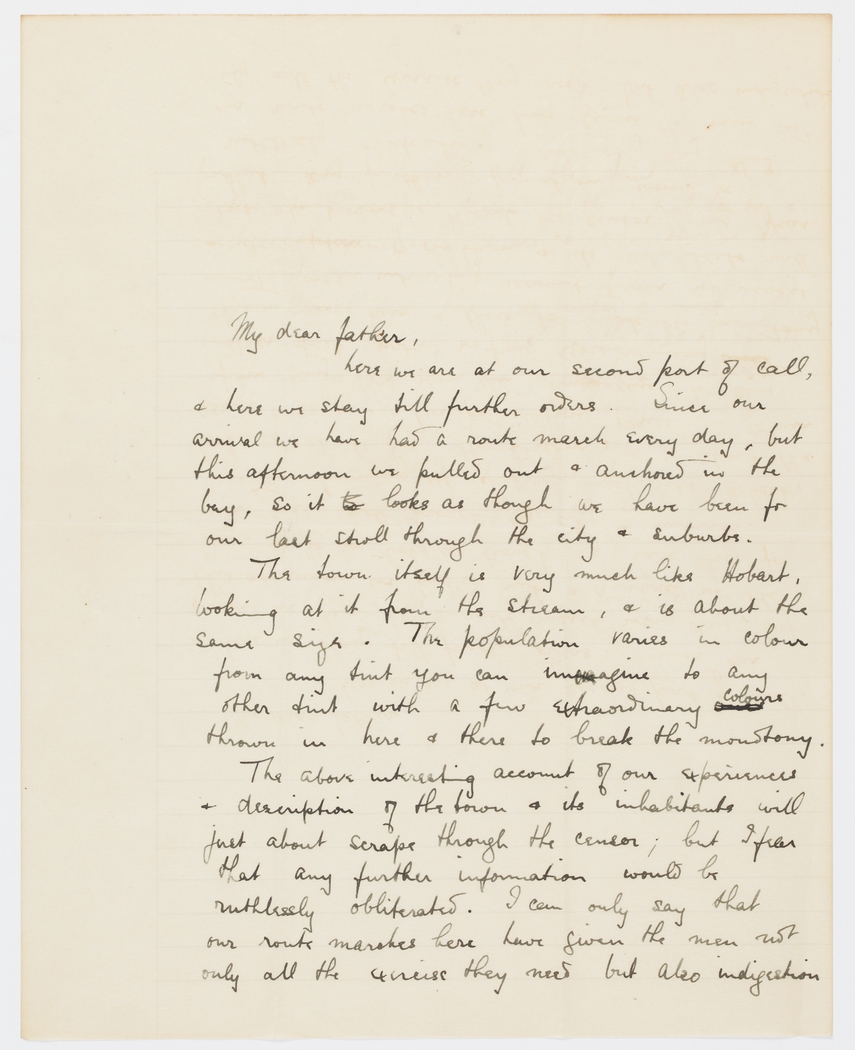 My dear father,
here we are at our second port of call,
& here we stay till further orders. Since our
arrival we have had a route march every day, but
this afternoon we pulled out & anchored in the
bay, so it looks as though we have been for
our last stroll through the city & suburbs.
The town itself is very much like Hobart,
looking at it from the stream, & is about the
same size. The population varies in colour
from any tint you can imagine to any
other tint with a few extraordinary colours
thrown in here & there to break the monotony.
The above interesting account of our experiences
& description of the town & its inhabitants will
just about scrape through the censor; but I fear
that any further information would be
ruthlessly obliterated. I can only say that
our route marches here have given the men not
only all the exercise they need but also indigestion